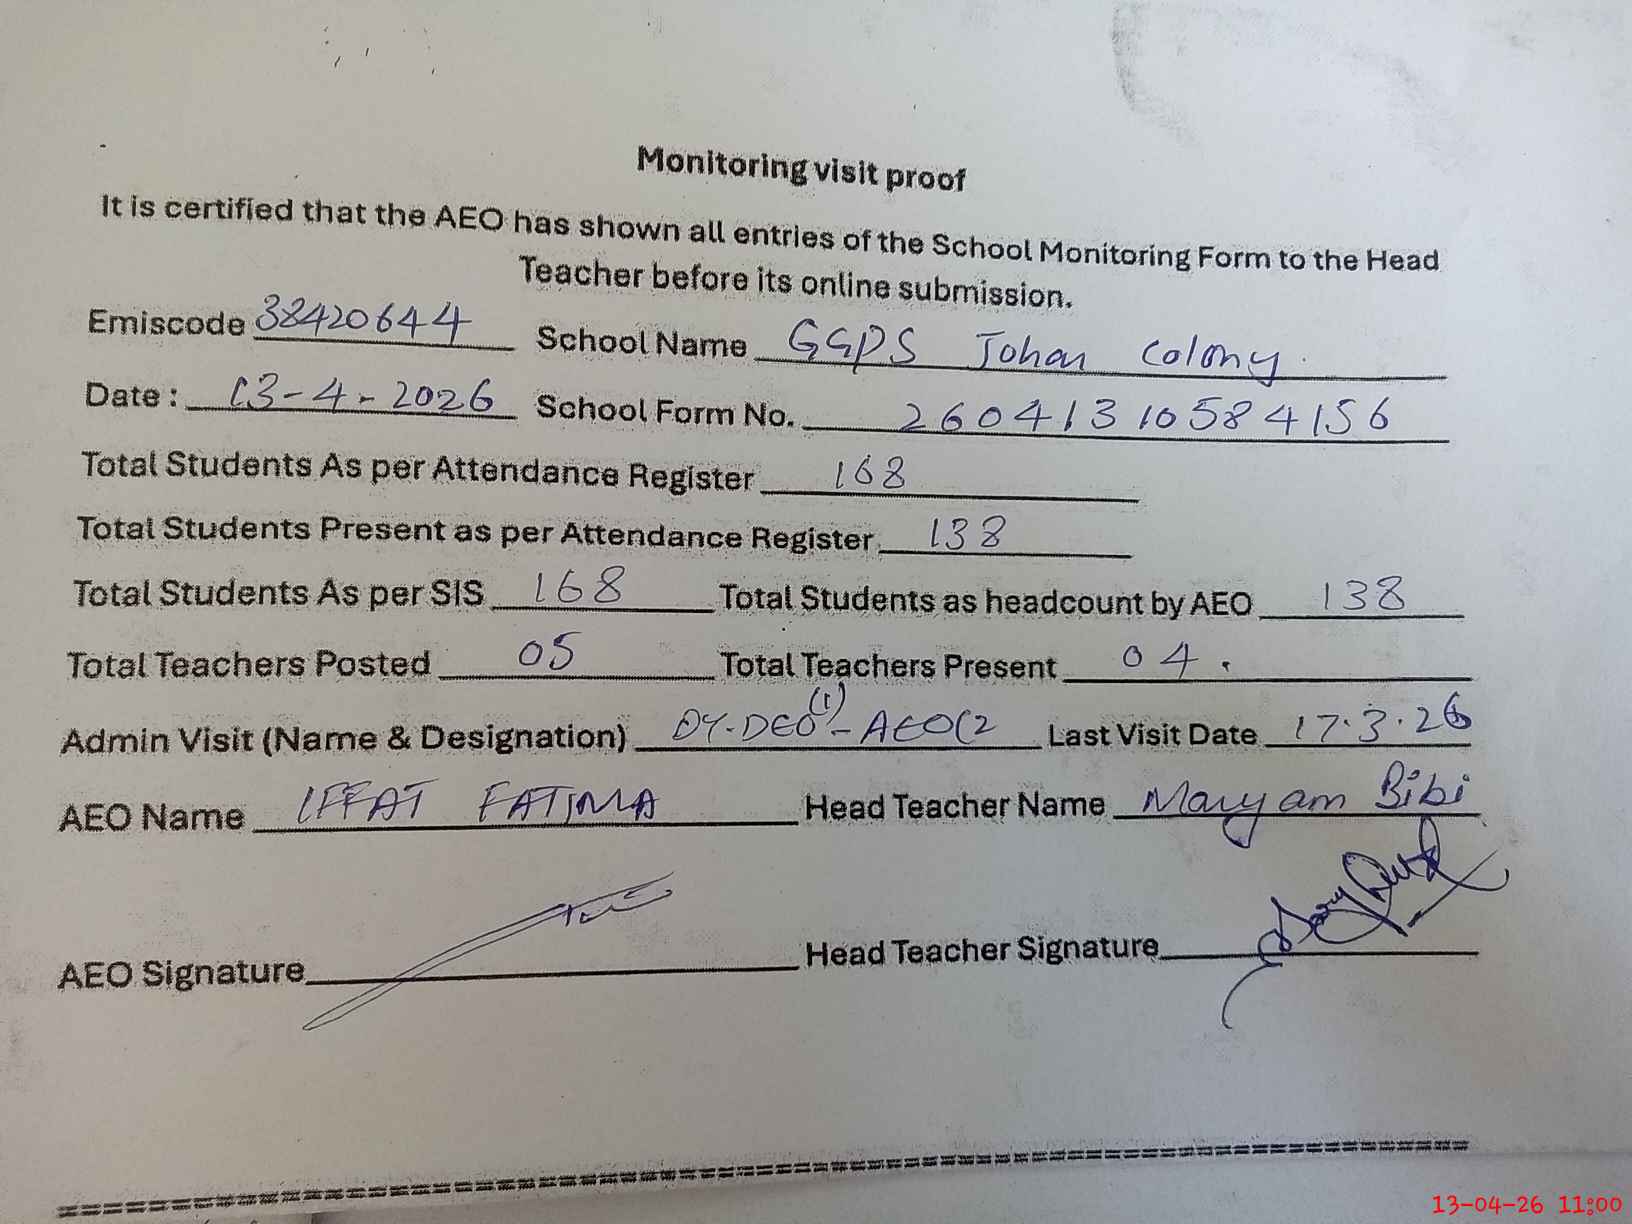 Monitoring visit proof
It is certified that the AEO has shown all entries of the School Monitoring Form to the Head
Teacher before its online submission.
Emiscode 38420644 School Name GGPS Johar Colony
Date : 13-4-2026 School Form No. 26041310584156
Total Students As per Attendance Register 168
Total Students Present as per Attendance Register 138
Total Students As per SIS 168 Total Students as headcount by AEO 138
Total Teachers Posted 05 Total Teachers Present 04.
Admin Visit (Name & Designation) DY-DEO(1)-AEO(2 Last Visit Date 17.3.26
AEO Name IFFAT FATIMA Head Teacher Name Maryam Bibi
AEO Signature Head Teacher Signature
13-04-26 11:00